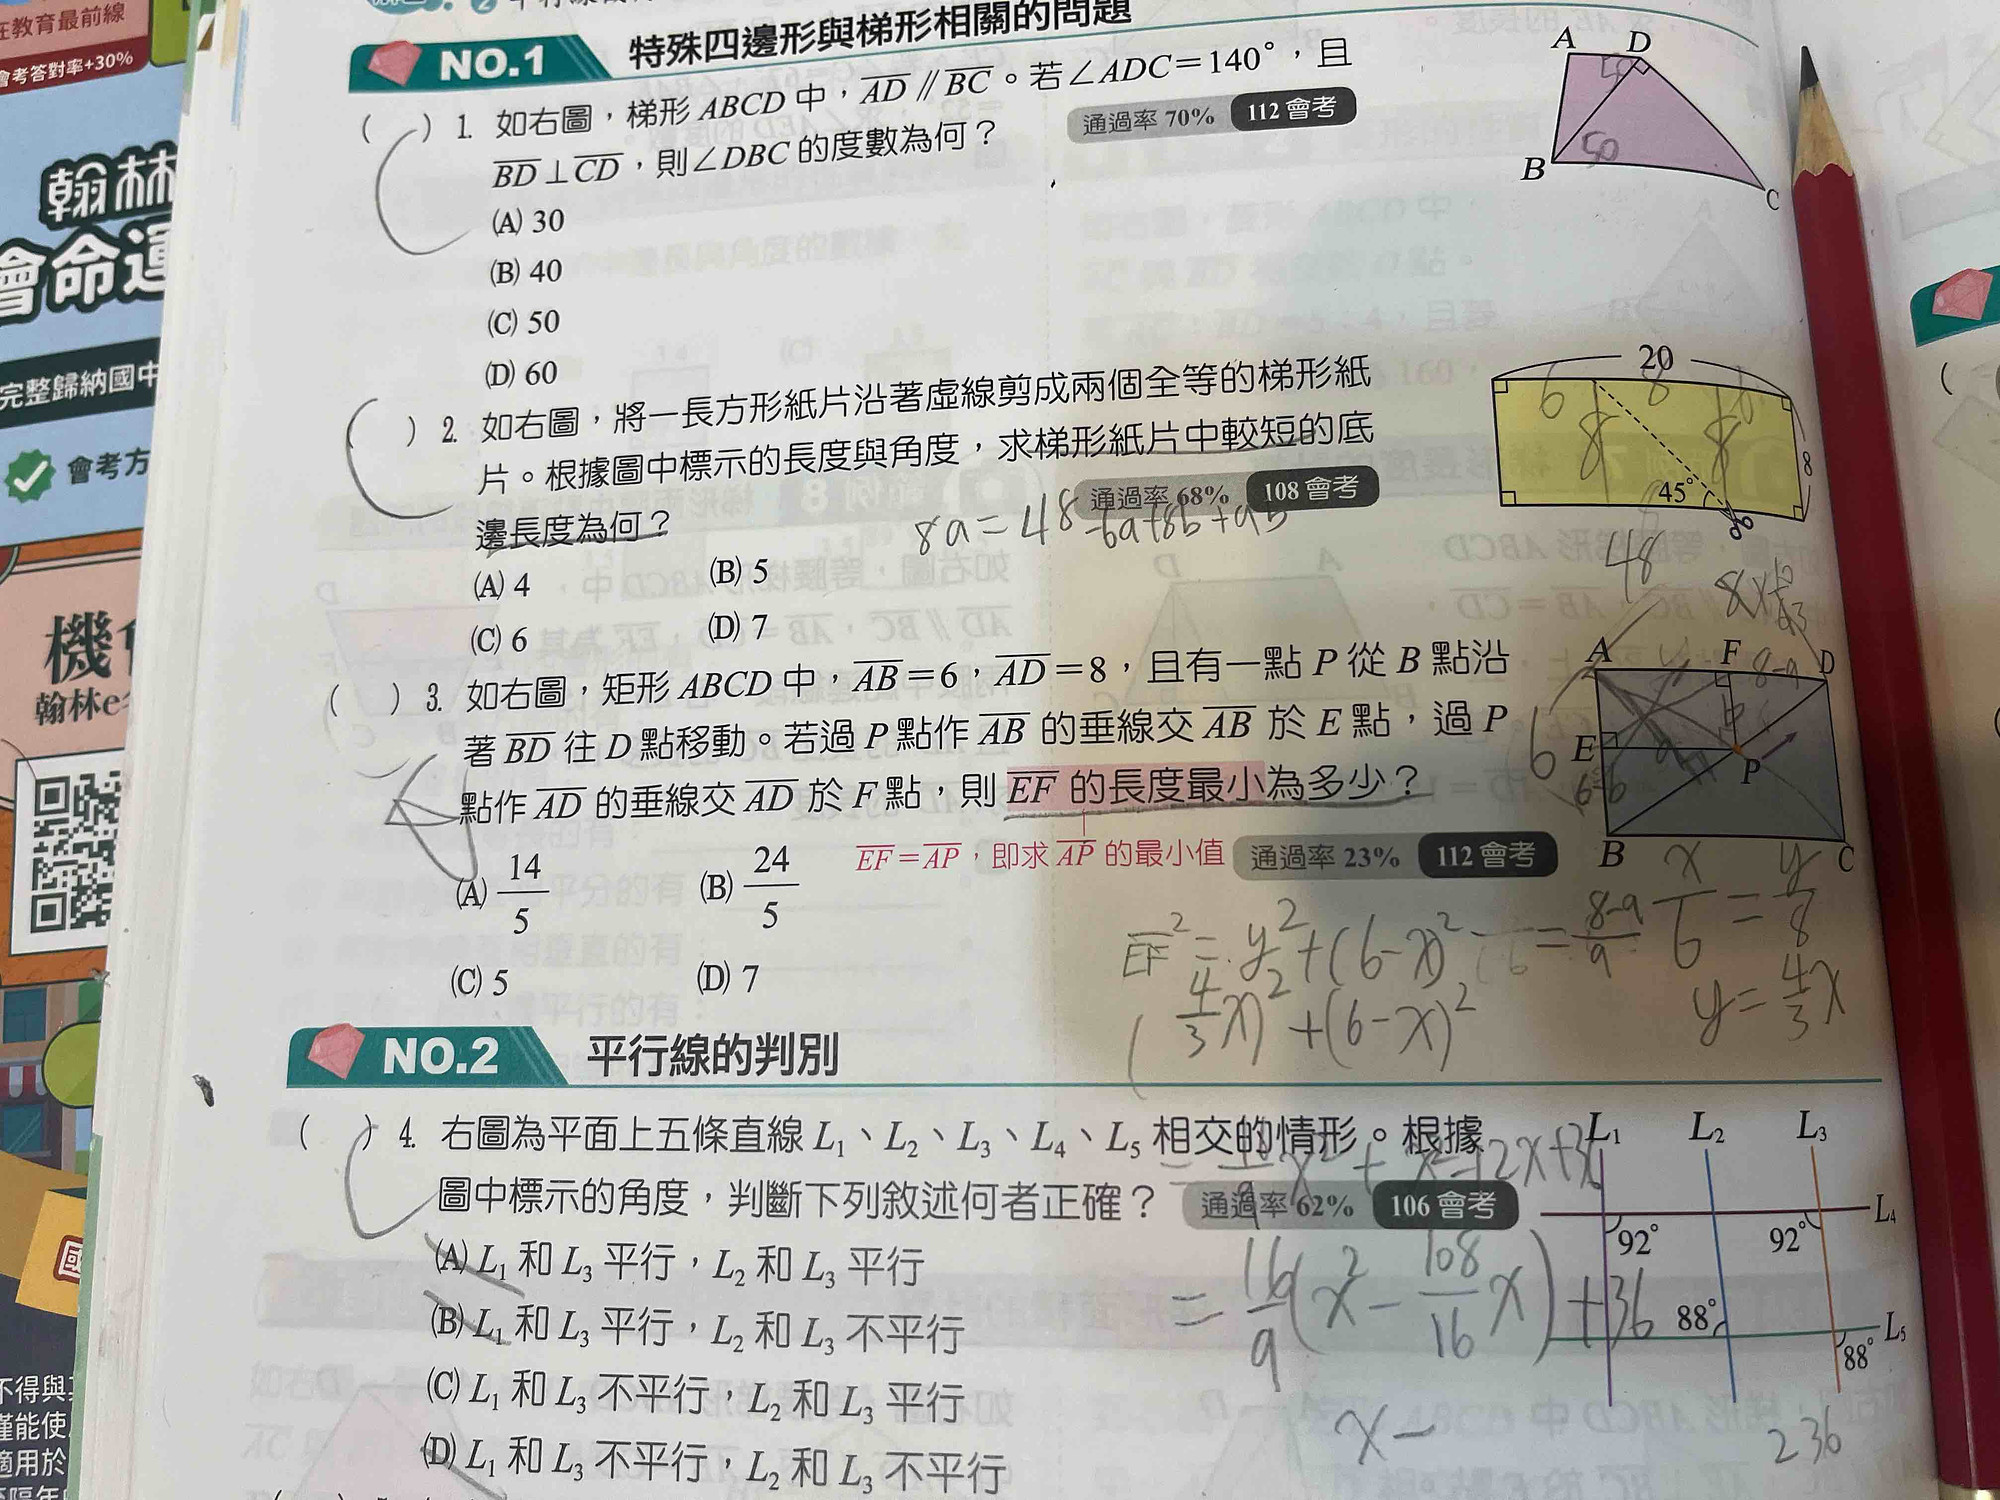 在教育最前線
會考答對率+30%
翰林
會命運
完整歸納國中
會考方
機會
翰林e
NO.1 特殊四邊形與梯形相關的問題
( ) 1. 如右圖，梯形 ABCD 中，AD // BC。若∠ADC＝140°，且
BD⊥CD，則∠DBC 的度數為何？
通過率 70% 112 會考
(A) 30
(B) 40
(C) 50
(D) 60
A D
B
C
50
50
( ) 2. 如右圖，將一長方形紙片沿著虛線剪成兩個全等的梯形紙
片。根據圖中標示的長度與角度，求梯形紙片中較短的底
邊長度為何？
通過率 68% 108 會考
(A) 4 (B) 5
(C) 6 (D) 7
20
6 8 6
8 8
8
45°
8a=48-6a+8b+ab
48
( ) 3. 如右圖，矩形 ABCD 中，AB＝6，AD＝8，且有一點 P 從 B 點沿
著 BD 往 D 點移動。若過 P 點作 AB 的垂線交 AB 於 E 點，過 P
點作 AD 的垂線交 AD 於 F 點，則 EF 的長度最小為多少？
EF＝AP，即求 AP 的最小值
通過率 23% 112 會考
(A) 14/5 (B) 24/5
(C) 5 (D) 7
A F D
8-a
6
E
P
6-b
B C
x/6 = y/8
y = 4/3 x
EF² = y² + (6-x)²
= 8-a/a
(4/3 x)² + (6-x)²
NO.2 平行線的判別
( ) 4. 右圖為平面上五條直線 L1、L2、L3、L4、L5 相交的情形。根據
圖中標示的角度，判斷下列敘述何者正確？
通過率 62% 106 會考
(A) L1 和 L3 平行，L2 和 L3 平行
(B) L1 和 L3 平行，L2 和 L3 不平行
(C) L1 和 L3 不平行，L2 和 L3 平行
(D) L1 和 L3 不平行，L2 和 L3 不平行
L1 L2 L3
L4
92° 92°
88°
L5
88°
= 16/9 x² + x²-12x+36
= 16/9 (x² - 108/16 x) + 36
x-
236